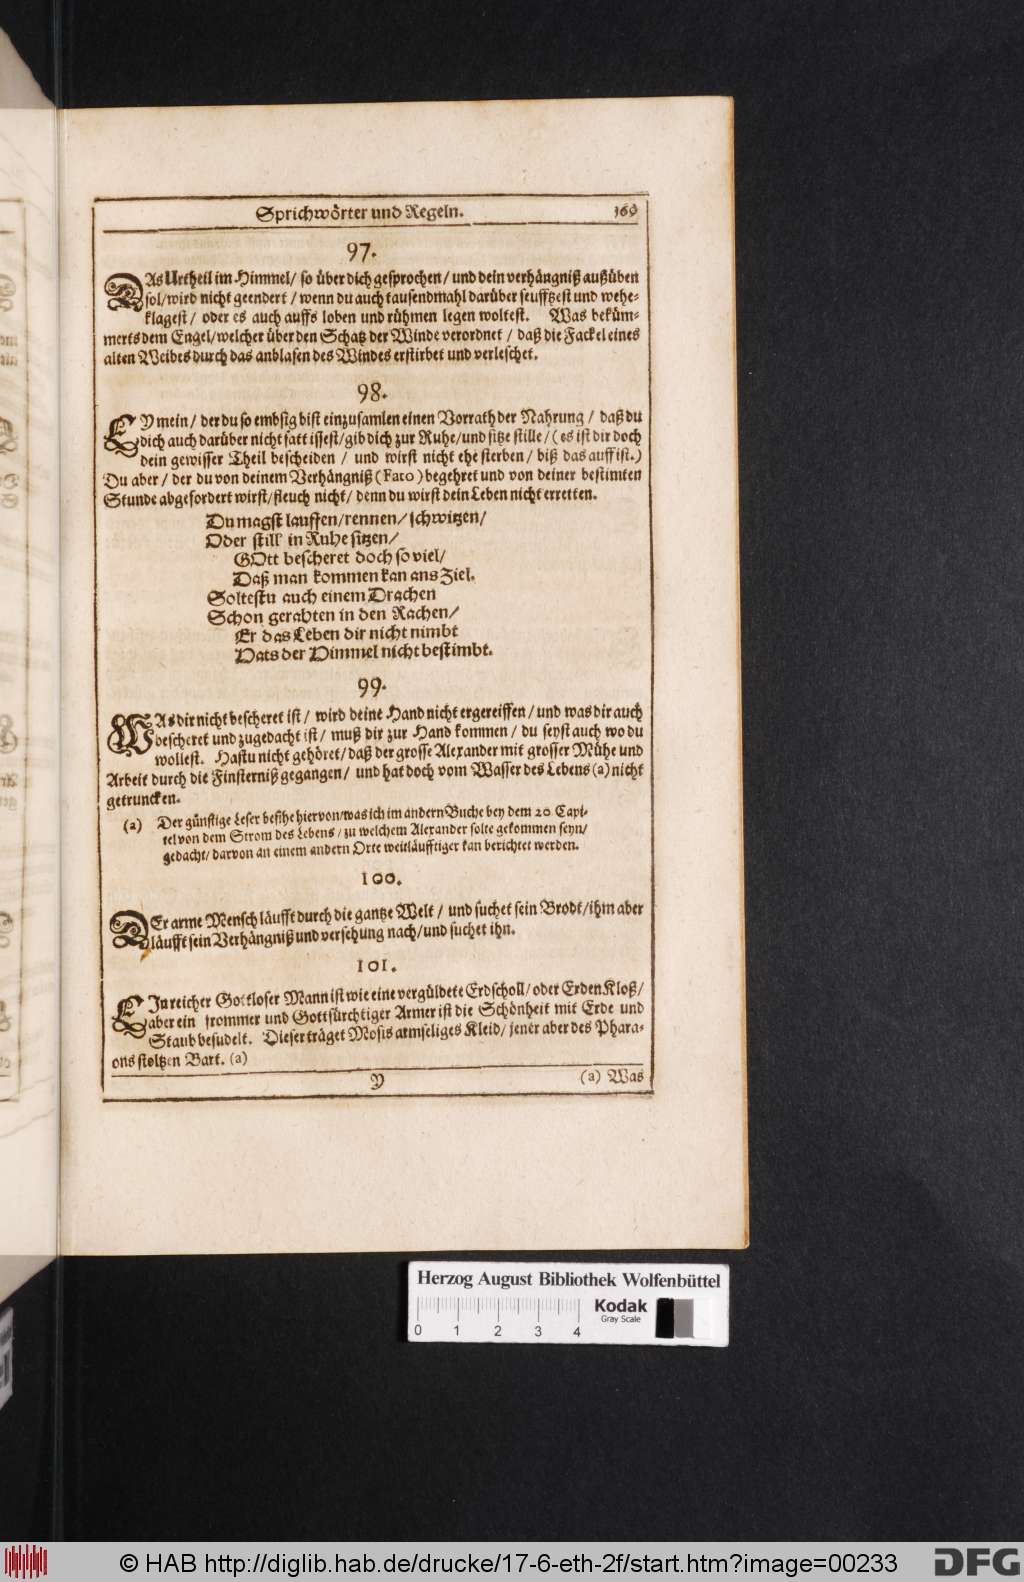 Sprichwörter und Regeln. 169
97.
DAs Urtheil im Himmel/ so über dich gesprochen/ und dein verhängniß außüben
sol/wird nicht geendert/ wenn du auch tausendmahl darüber seufftzest und wehe-
klagest/ oder es auch auffs loben und rühmen legen woltest. Was beküm-
merts dem Engel/welcher über den Schatz der Winde verordnet/ daß die Fackel eines
alten Weibes durch das anblasen des Windes erstirbet und verleschet.
98.
EY mein/ der du so embsig bist einzusamlen einen Vorrath der Nahrung/ daß du
dich auch darüber nicht satt issest/gib dich zur Ruhe/und sitze stille/(es ist dir doch
dein gewisser Theil bescheiden/ und wirst nicht ehe sterben/ biß das auff ist.)
Du aber/ der du von deinem Verhängniß (Fato) begehret und von deiner bestimten
Stunde abgefordert wirst/fleuch nicht/ denn du wirst dein Leben nicht erretten.
Du magst lauffen/rennen/schwitzen/
Oder still in Ruhe sitzen/
GOtt bescheret doch so viel/
Daß man kommen kan ans Ziel.
Soltestu auch einem Drachen
Schon gerahten in den Rachen/
Er das Leben dir nicht nimbt
Hats der Himmel nicht bestimbt.
99.
WAs dir nicht bescheret ist/ wird deine Hand nicht ergreiffen/ und was dir auch
bescheret und zugedacht ist/ muß dir zur Hand kommen/ du seyst auch wo du
wollest. Hastu nicht gehöret/daß der grosse Alexander mit grosser Mühe und
Arbeit durch die Finsterniß gegangen/ und hat doch vom Wasser des Lebens (a) nicht
getruncken.
(a) Der günstige Leser besihe hiervon/was ich im andern Buche bey dem 20 Capi-
tel von dem Strom des Lebens/zu welchem Alexander solte gekommen seyn/
gedacht/ darvon an einem andern Orte weitläufftiger kan berichtet werden.
100.
DEr arme Mensch läufft durch die gantze Welt/ und suchet sein Brodt/ihm aber
läufft sein Verhängniß und versehung nach/und suchet ihn.
101.
EIn reicher Gottloser Mann ist wie eine vergüldete Erdscholl/oder Erden Kloß/
aber ein frommer und Gottfürchtiger Armer ist die Schönheit mit Erde und
Staub besudelt. Dieser träget Mosis armseliges Kleid/ jener aber des Phara-
ons stoltzen Bart. (a)
Y (a) Was
Herzog August Bibliothek Wolfenbüttel
Kodak
Gray Scale
0 1 2 3 4
© HAB http://diglib.hab.de/drucke/17-6-eth-2f/start.htm?image=00233
DFG